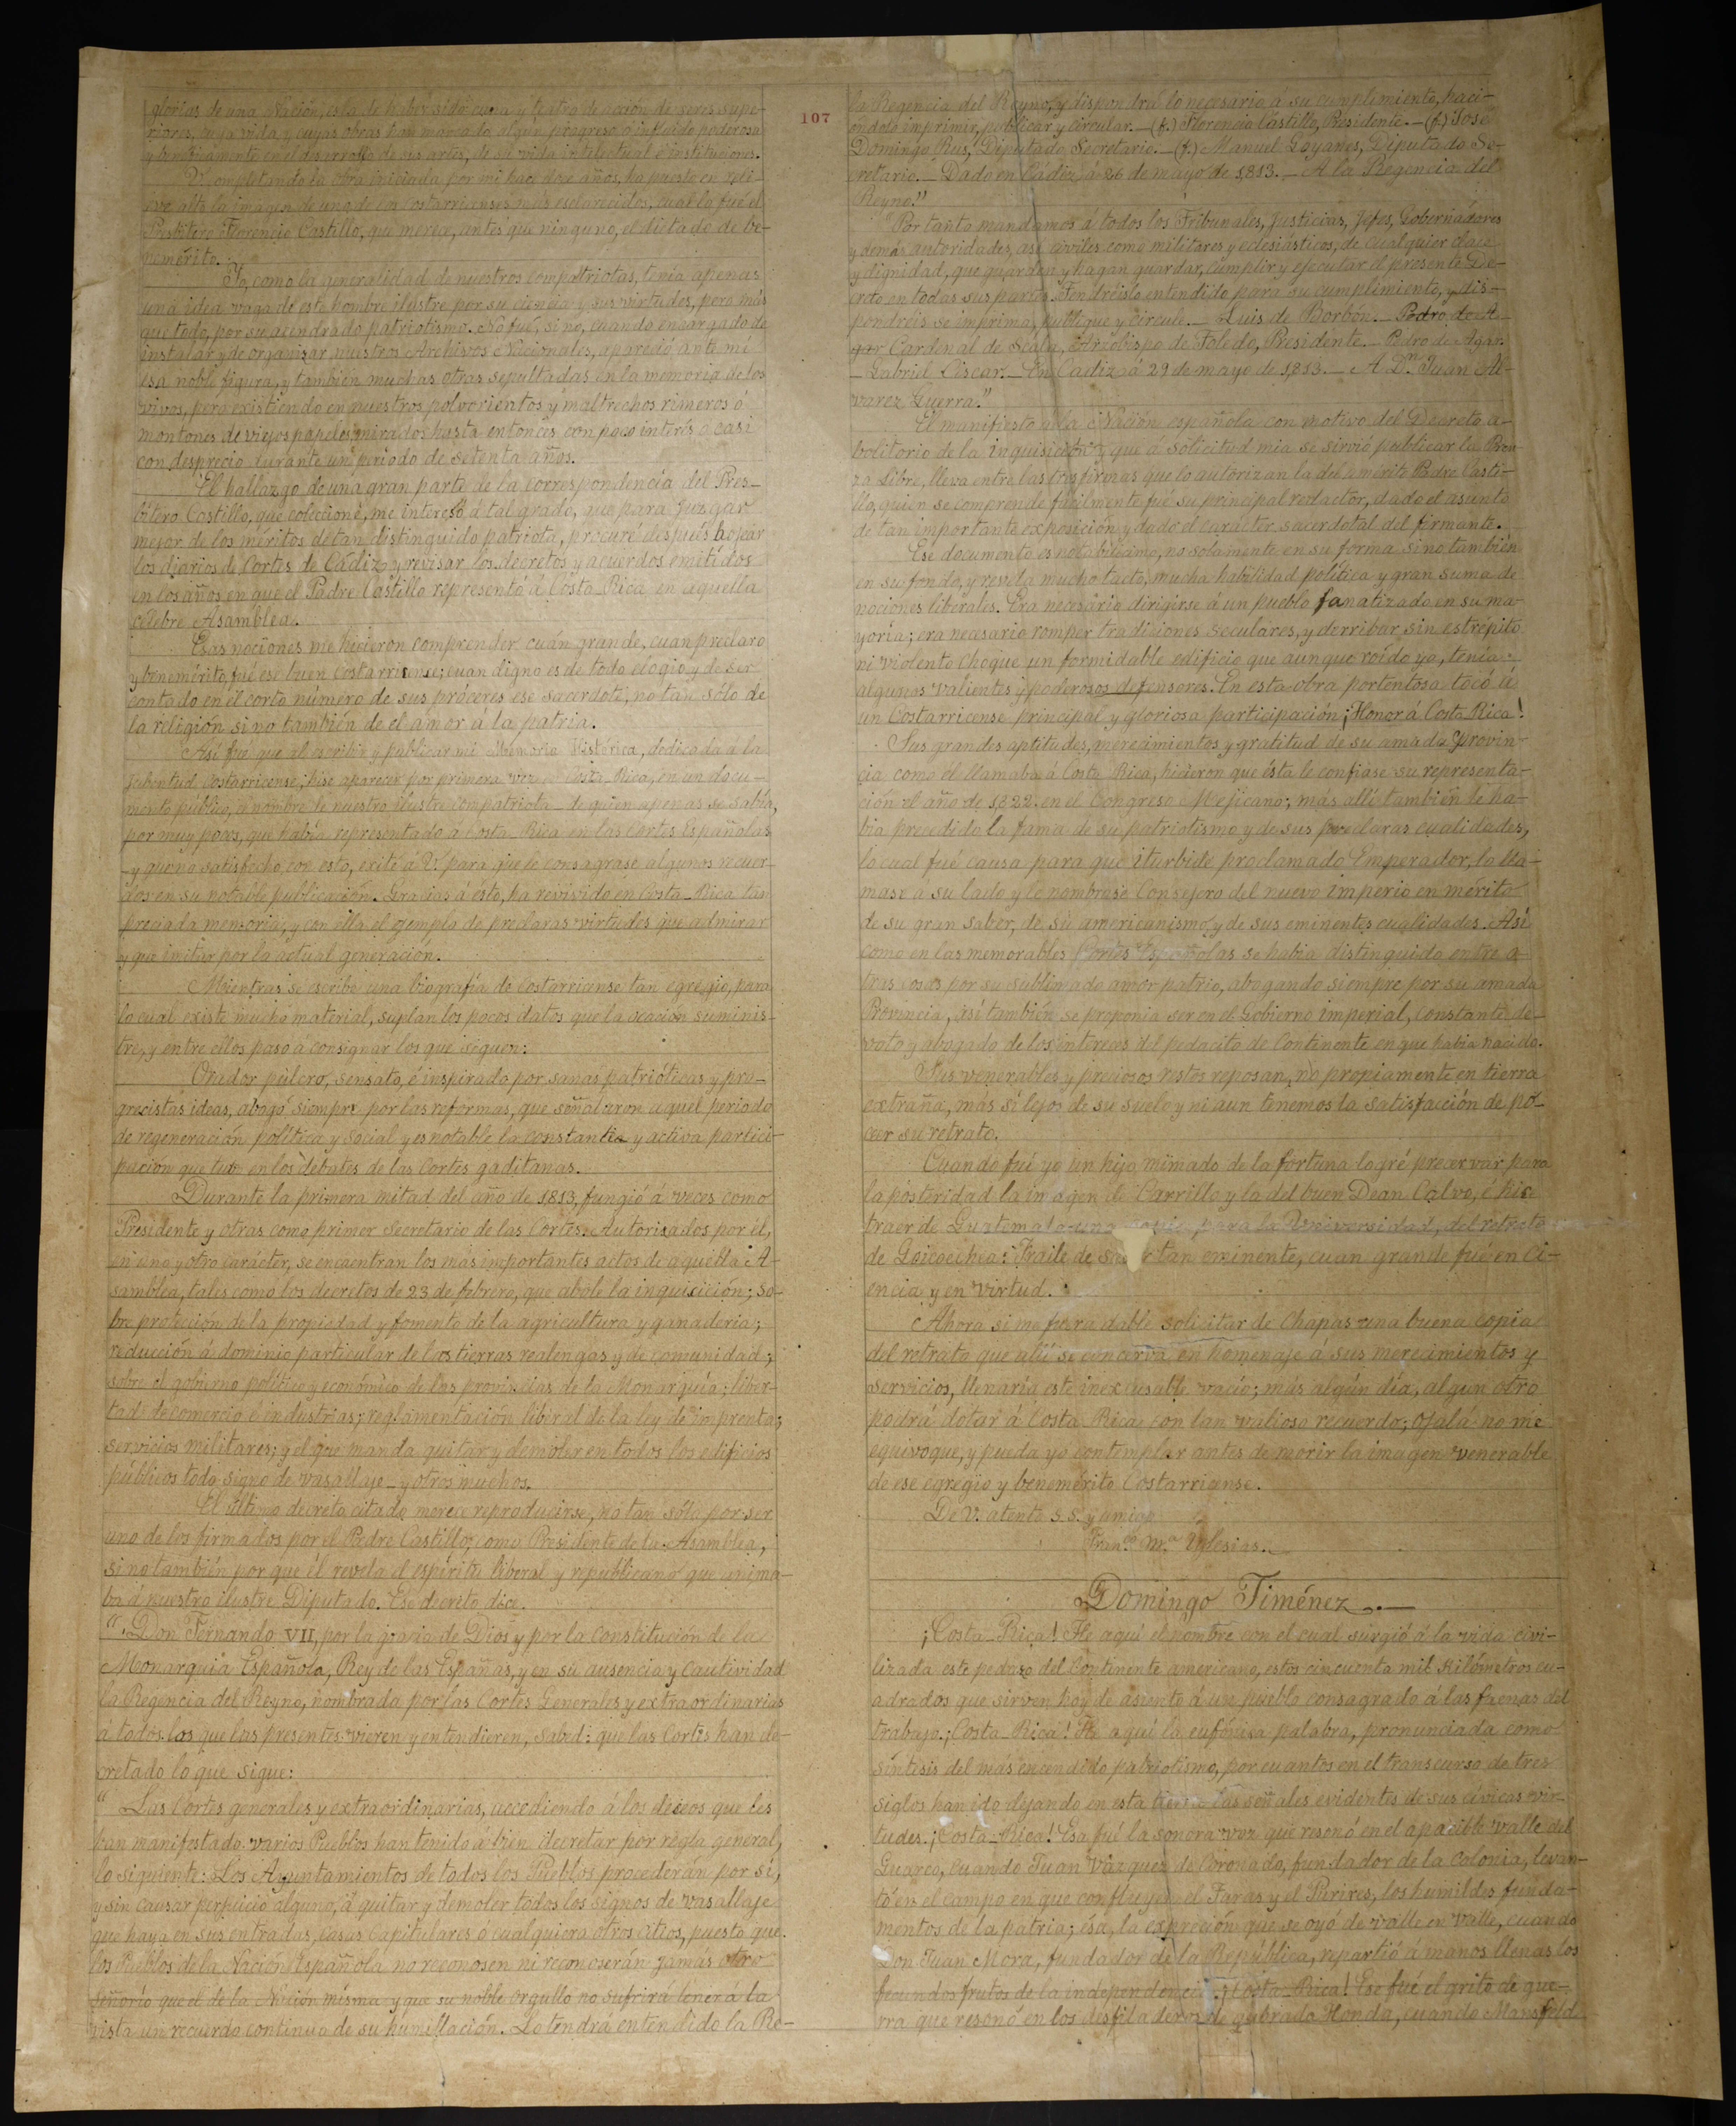 glorias de una Nación, es la de haber sido cuna y teatro de acción de seres supe-
riores, cuya vida y cuyas obras han marcado algún progreso, o influído poderosa
y benéficamente en el desarrollo de sus artes, de su vida intelectual é instituciones.
V. completando la obra iniciada por mi hace doce años, ha puesto en reli-
eve alto la imagen de uno de los costarricenses más esclarecidos, cual lo fué el
Presbítero Florencio Castillo, que merece, antes que ninguno, el dictado de be-
nemérito.
Yo, como la generalidad de nuestros compatriotas, tenía apenas
una idea vaga de este hombre ilustre por su ciencia y sus virtudes, pero más
que todo, por su acendrado patriotismo. No fué, si no, cuando encargado de
instalar y de organizar nuestros Archivos Nacionales, apareció ante mí
esa noble figura, y también muchas otras sepultadas en la memoria de los
vivos, pero existiendo en nuestros polvorientos y maltrechos rimeros ó
montones de viejos papeles, mirados hasta entonces con poco interés ó casi
con desprecio durante un período de setenta años.
El hallazgo de una gran parte de la correspondencia del Pres-
bítero Castillo, que coleccioné, me interesó á tal grado, que para juzgar
mejor de los méritos de tan distinguido patriota, procuré después hojear
los diarios de Cortes de Cádiz y revisar los decretos y acuerdos emitidos
en los años en que el Padre Castillo representó á Costa-Rica en aquella
célebre Asamblea.
Esas nociones me hicieron comprender cuán grande, cuan preclaro
y benemérito, fué ese buen Costarricense; cuan digno es de todo elogio y de ser
contado en el corto número de sus próceres ese sacerdote, no tan sólo de
la religión si no también de el amor á la patria.
Así fué que al escribir y publicar mi Memoria Histórica, dedicada á la
juventud costarricense, hise aparecer por primera vez en Costa-Rica, en un docu-
mento público, el nombre de nuestro ilustre compatriota - de quien apenas se sabía,
por muy pocos, que había representado á Costa-Rica en las Cortes Españolas
- y que no satisfecho con esto, exité á V. para que le consagrase algunos recuer-
dos en su notable publicación. Gracias á ésto, ha revivido en Costa-Rica tan
preciada memoria, y con ella el ejemplo de preclaras virtudes que admirar
y que imitar por la actual generación.
Mientras se escribe una biografía de Costarricense tan egregio, para
lo cual existe mucho material, suplan los pocos datos que la ocación suminis-
tre, y entre ellos paso á consignar los que siguen:
Orador pulcro, sensato, é inspirado por sanas patrióticas y pro-
gresistas ideas, abogó siempre por las reformas, que señalaron aquel período
de regeneración política y social y es notable la constante y activa partici-
pación que tubo en los debates de las Cortes gaditanas.
Durante la primera mitad del año de 1,813, fungió á veces como
Presidente y otras como primer Secretario de las Cortes. Autorisados por él,
en uno y otro carácter, se encuentran los más importantes actos de aquella A-
samblea, tales como los decretos de 23 de febrero, que abole la inquisición; so-
bre protección de la propiedad y fomento de la agricultura y ganadería;
reducción á dominio particular de las tierras realengas y de comunidad;
sobre el gobierno político y económico de las provincias de la Monarquía; liber-
tad de comercio é industrias; reglamentación liberal de la ley de imprenta;
servicios militares; y el que manda quitar y demoler en todos los edificios
públicos todo signo de vasallaje - y otros muchos.
El último decreto citado merece reproducirse, no tan sólo por ser
uno de los firmados por el Padre Castillo, como Presidente de la Asamblea,
si no también por que él revela el espíritu liberal y republicano que anima-
ba á nuestro ilustre Diputado. Ese decreto dice.
"Don Fernando VII, por la gracia de Dios y por la Constitución de la
Monarquía Española, Rey de las Españas, y en su ausencia y Cautividad
la Regencia del Reyno, nombrada por las Cortes Generales y extraordinarias
á todos los que las presentes vieren y entendieren, sabed: que las Cortes han de-
cretado lo que sigue:
"Las Cortes generales y extraordinarias, accediendo á los deseos que les
han manifestado varios Pueblos han tenido á bien decretar por regla general,
lo siguiente: Los Ayuntamientos de todos los Pueblos procederán por sí,
y sin causar perjuicio alguno, á quitar y demoler todos los signos de vasallaje
que haya en sus entradas, casas capitulares ó cualquiera otros citios, puesto que
los Pueblos de la Nación Española no reconosen ni reconoserán jamás otro
señorío que el de la Nación misma y que su noble orgullo no sufrirá tener á la
vista un recuerdo continuo de su humillación. Lo tendrá entendido la Re-
107
la Regencia del Reyno, y dispondrá lo necesario á su cumplimiento, haci-
éndolo imprimir, publicar y circular. - (f.) Florencio Castillo, Presidente. - (f.) José
Domingo Rus, Diputado Secretario. - (f.) Manuel Goyanes, Diputado Se-
cretario. - Dado en Cádiz, á 26 de mayo de 1,813. - A la Regencia del
Reyno."
"Por tanto mandamos á todos los Tribunales, Justicias, Jefes, Gobernadores
y demás autoridades, así civiles como militares y eclesiásticos, de cualquier clase
y dignidad, que guarden y hagan guardar, cumplir y ejecutar el presente De-
creto en todas sus partes. Tendréislo entendido para su cumplimiento, y dis-
pondréis se imprima, publique y circule. - Luis de Borbón. - Pedro de A-
gar Cardenal de Scala, Arzobispo de Toledo, Presidente. - Pedro de Agar.
- Gabriel Ciscar. - En Cadiz á 29 de mayo de 1,813. - A Dn. Juan Al-
varez Guerra."
El manifiesto á la Nación española con motivo del Decreto a-
bolitorio de la Inquisición y que á solicitud mia se sirvió publicar la Pren-
za Libre, lleva entre las tres firmas que lo autorizan la del emérito Padre Casti-
llo, quien se comprende fácilmente fué su principal redactor, dado el asunto
de tan importante exposición y dado el carácter sacerdotal del firmante.
Ese documento es notabilísimo, no solamente en su forma si no también
en su fondo, y revela mucho tacto, mucha habilidad política y gran suma de
nociones liberales. Era necesario dirigirse á un pueblo fanatizado en su ma-
yoría; era necesario romper tradiciones seculares, y derribar, sin estrépito
ni violento choque un formidable edificio que aunque roído ya, tenía
algunos valientes y poderosos defensores. En esta obra portentosa tocó á
un Costarricense principal y gloriosa participación ¡Honor á Costa Rica!
Sus grandes aptitudes, merecimientos y gratitud de su amada provin-
cia como él llamaba á Costa Rica, hicieron que ésta le confiase su representa-
ción el año de 1,822 en el Congreso Mejicano; más allí también le ha-
bía precedido la fama de su patriotismo y de sus preclaras cualidades,
lo cual fué causa para que iturbide proclamado Emperador, lo lla-
mase á su lado y le nombrase Consejero del nuevo imperio en mérito
de su gran saber, de su americanismo y de sus eminentes cualidades. Así
como en las memorables Cortes Españolas se había distinguido entre o-
tras cosas por su sublimado amor patrio, abogando siempre por su amada
Provincia, así también se proponía ser en el Gobierno imperial, constante de-
voto y abogado de los intereces del pedacito de Continente en que había nacido.
Sus venerables y preciosos restos reposan, no propiamente en tierra
extraña, más sí lejos de su suelo y ni aun tenemos la satisfacción de po-
ceer su retrato.
Cuando fuí yo un hijo mimado de la fortuna logré precervar para
la posteridad la imagen de Carrillo y la del buen Dean Calvo, é hice
traer de Guatemala una copia para la Universidad, del retrato
de Goicoechea: Fraile de tan eminente, cuan grande fué en ci-
encia y en virtud.
Ahora si me fuera dable solicitar de Chapas una buena copia
del retrato que allí se concerva en homenaje á sus merecimientos y
servicios, llenaría este inexcusable vacío; más algún día, algun otro
podrá dotar á Costa-Rica con tan valioso recuerdo; ojalá no me
equivoque, y pueda yo contemplar antes de morir la imagen venerable
de ese egregio y benemérito Costarricense.
De V. atento s.s. y amigo
Franco. Ma. Yglesias.
Domingo Jiménez.
¡Costa-Rica! He aquí el nombre con el cual surgió á la vida civi-
lizada este pedaso del Continente americano, estos cincuenta mil Kilómetros cu-
adrados que sirven hoy de asiento á un pueblo consagrado á las faenas del
trabajo. ¡Costa-Rica! He aquí la eufónica palabra, pronunciada como
síntesis del más encendido patriotismo, por cuantos en el transcurso de tres
siglos han ido dejando en esta tierra las señales evidentes de sus cívicas vir-
tudes. ¡Costa-Rica! Esa fué la sonora voz que resonó en el apacible valle del
Guarco, cuando Juan Vázquez de Coronado, fundador de la colonia, levan-
tó en el campo en que confluyen el Taras y el Purires, los humildes funda-
mentos de la patria; ésa, la expreción que se oyó de valle en valle, cuando
Don Juan Mora, fundador de la República, repartió á manos llenas los
fecundos frutos de la independencia. ¡Costa-Rica! Ese fué el grito de gue-
rra que resonó en los desfiladeros de quebrada Honda, cuando Mansfeld